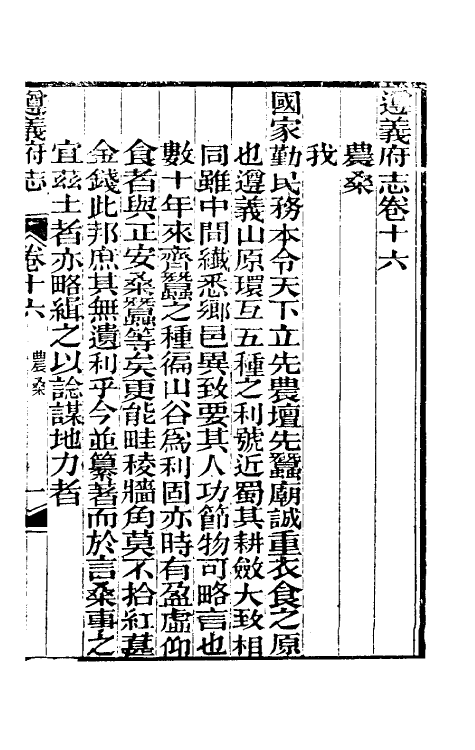 遵義府志卷十六
農桑
我
國家勤民務本令天下立先農壇先蠶廟誠重衣食之原
也遵義山原環互五種之利號近蜀其耕斂大致相
同雖中間纎悉鄉邑異致要其人功節物可略言也
數十年來齊蠶之種徧山谷為利固亦時有盈虛仰
食者與正安桑蠶等矣更能畦稜牆角莫不拾紅葚
金錢此邦庶其無遺利乎今並纂著而於言桑事之
宜玆土者亦略緝之以諗謀地力者
遵義府志 卷十六 農桑 一